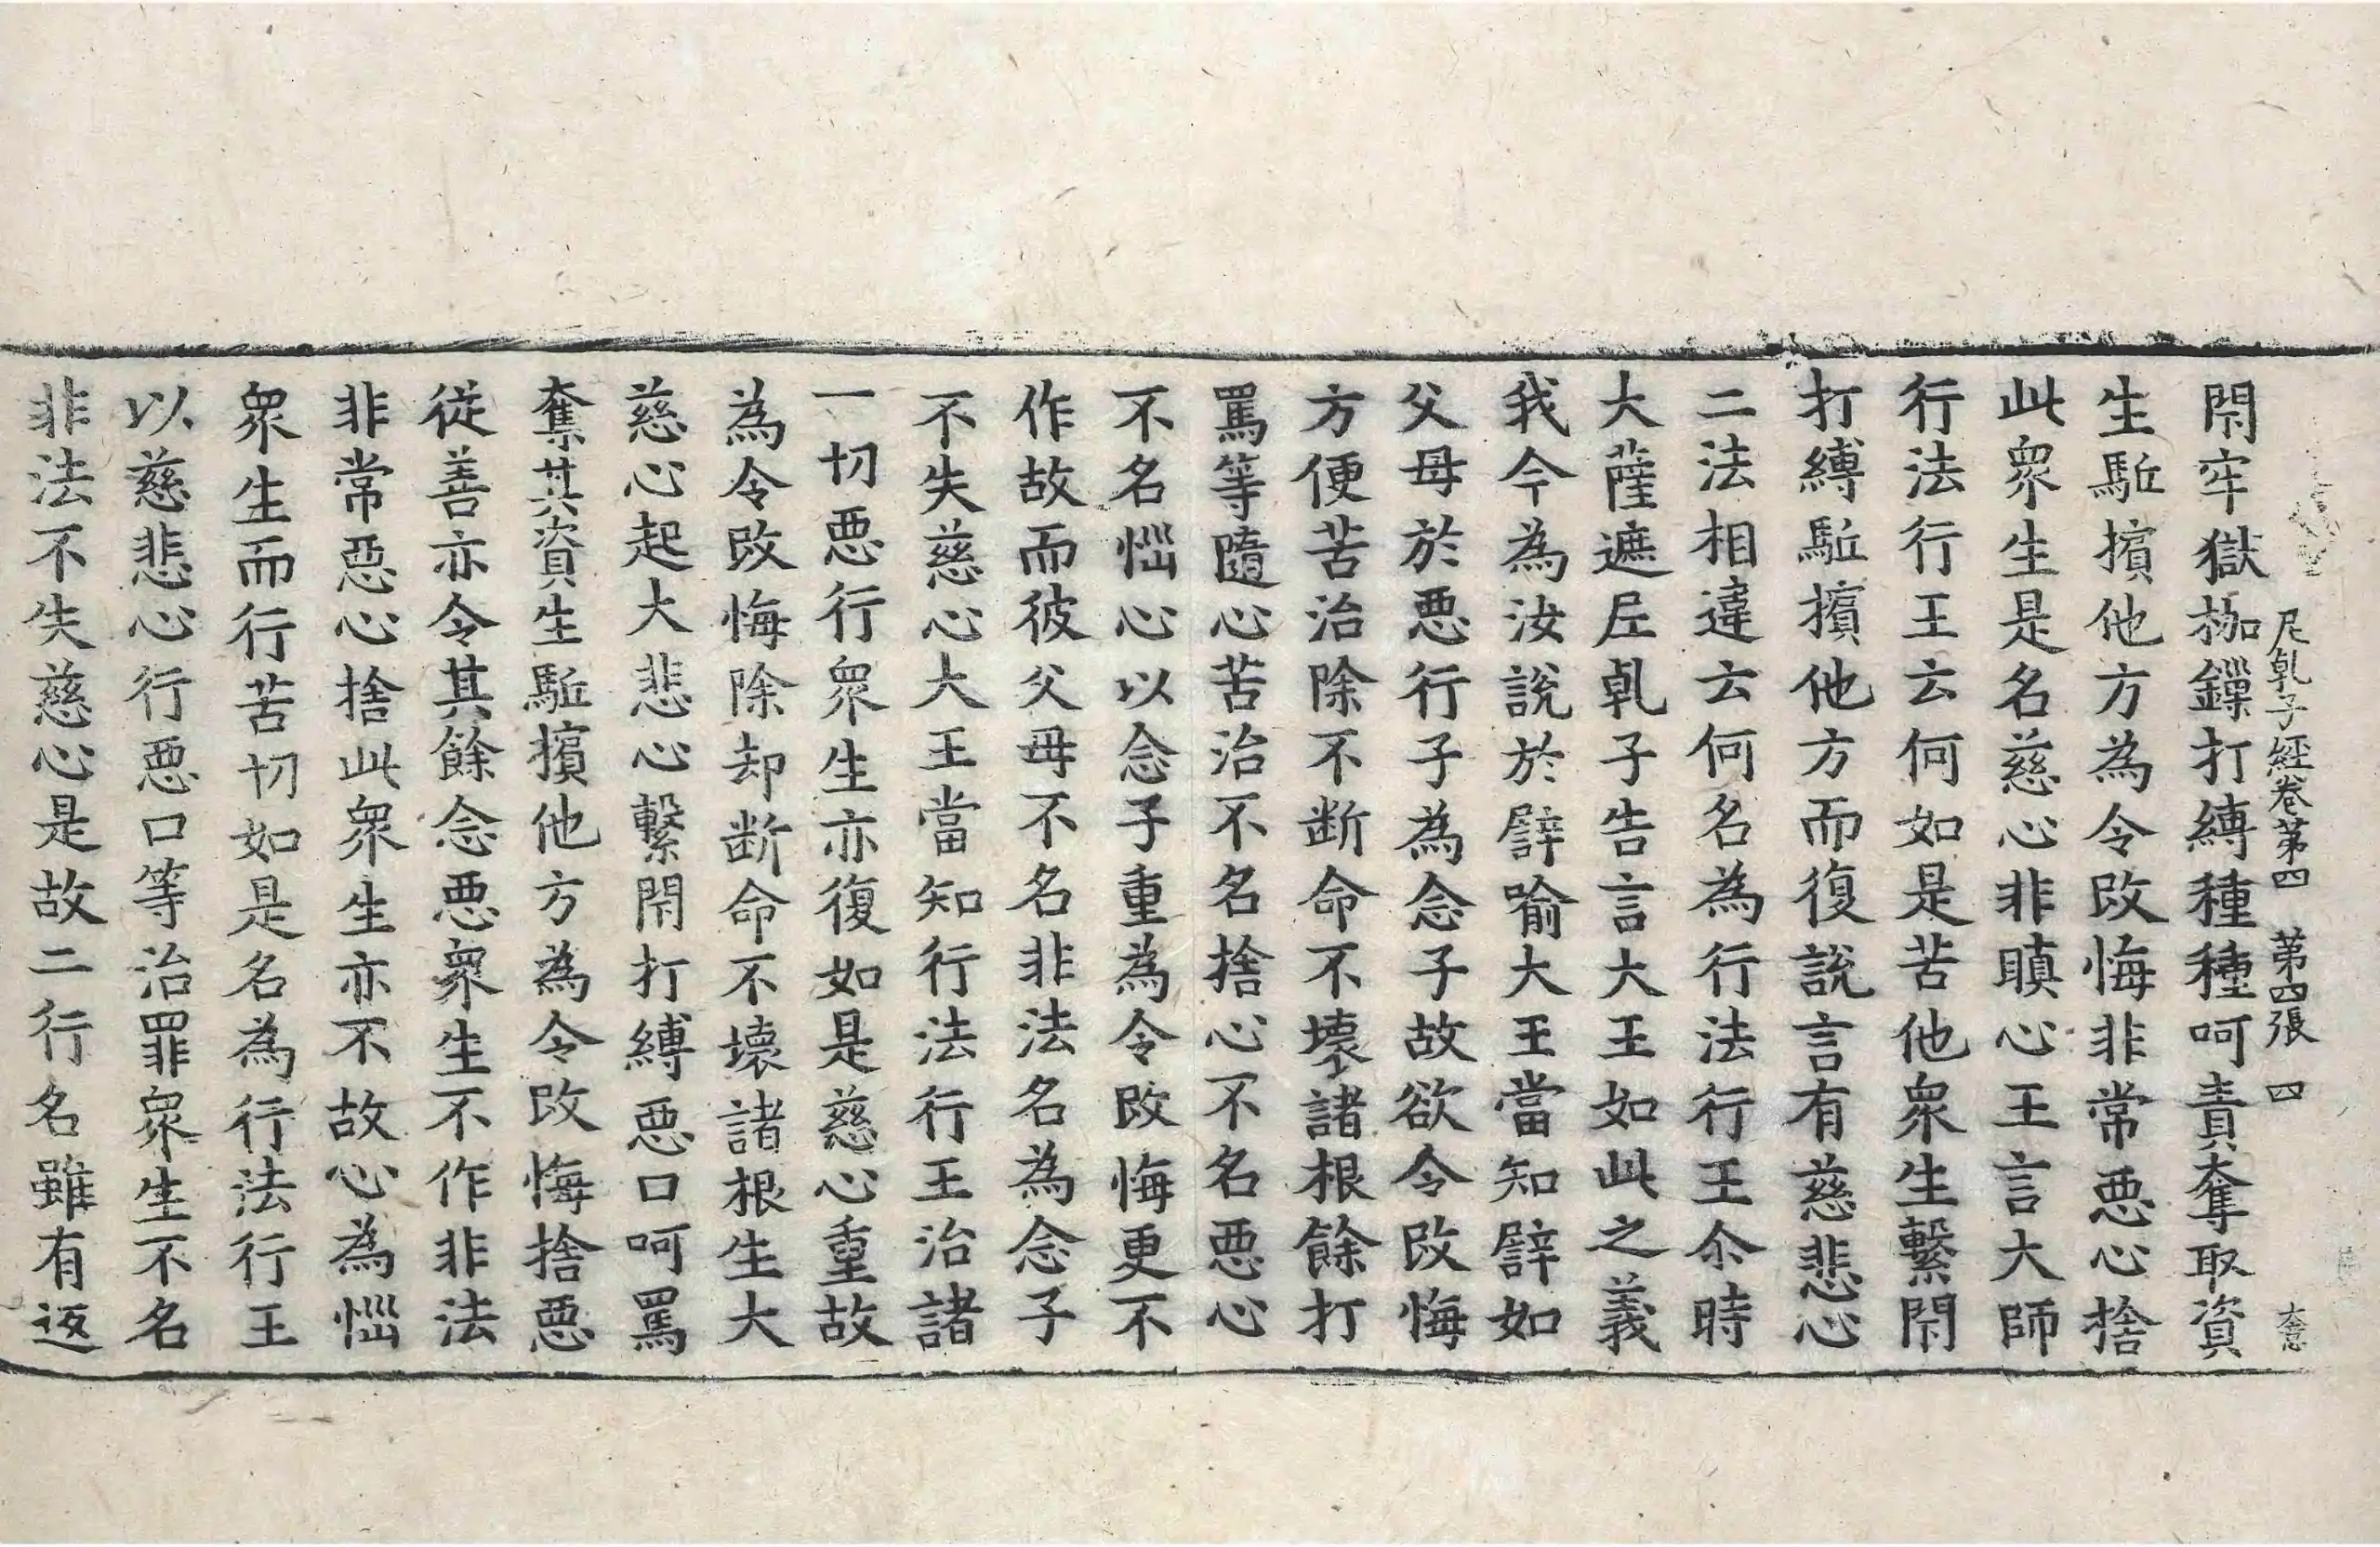 尼乹子經卷第四　第四張　四
閇牢獄枷鏁打縛種種呵責奪取資
生駈擯他方為令改悔非常惡心捨
此衆生是名慈心非瞋心王言大師
行法行王云何如是苦他衆生繫閇
打縛駈擯他方而復說言有慈悲心
二法相違云何名為行法行王尒時
大薩遮尼乹子告言大王如此之義
我今為汝說於譬喻大王當知譬如
父母於惡行子為念子故欲令改悔
方便苦治除不断命不壞諸根餘打
罵等隨心苦治不名捨心不名惡心
不名惱心以念子重為令改悔更不
作故而彼父母不名非法名為念子
不失慈心大王當知行法行王治諸
一切惡行衆生亦復如是慈心重故
為令改悔除却断命不壞諸根生大
慈心起大悲心繫閇打縛惡口呵罵
奪其資生駈擯他方為令改悔捨惡
從善亦令其餘念惡衆生不作非法
非常惡心捨此衆生亦不故心為惱
衆生而行苦切如是名為行法行王
以慈悲心行惡口等治罪衆生不名
非法不失慈心是故二行名雖有返